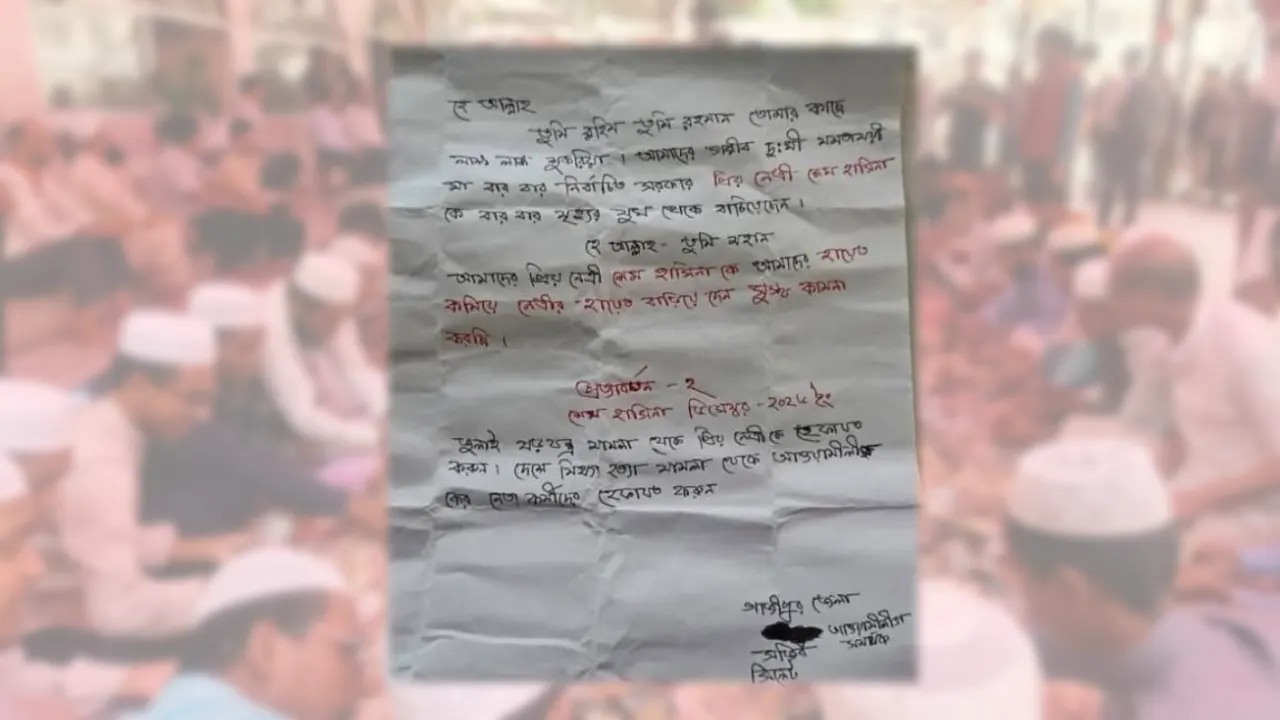 হে আল্লাহ
তুমি রহিম তুমি রহমান তোমার কাছে
লাখ লাখ শুকরিয়া । আমাদের গরীব দুঃখী মমতাময়ী
মা বার বার নির্বাচিত সরকার প্রিয় নেত্রী শেখ হাসিনা
কে বার বার মৃত্যুর মুখ থেকে বাচিয়েদেন ।
হে আল্লাহ - তুমি মহান
আমাদের প্রিয় নেত্রী শেখ হাসিনা কে আমাদের হায়েত
কমিয়ে নেত্রীর হায়েত বাড়িয়ে দেন সুস্থ্য কামনা
করছি ।
প্রত্যাবর্তন - ২
শেখ হাসিনা ডিসেম্বর - ২০২৫ ইং
জুলাই ষড়যন্ত্র মামলা থেকে প্রিয় নেত্রীকে হেফাযত
করুন । দেশে মিথ্যা হত্যা মামলা থেকে আওয়ামীলীগ
কের নেতা কর্মীদের হেফাযত করুন
গাজীপুর জেলা
আওয়ামীলীগ
সমর্থক